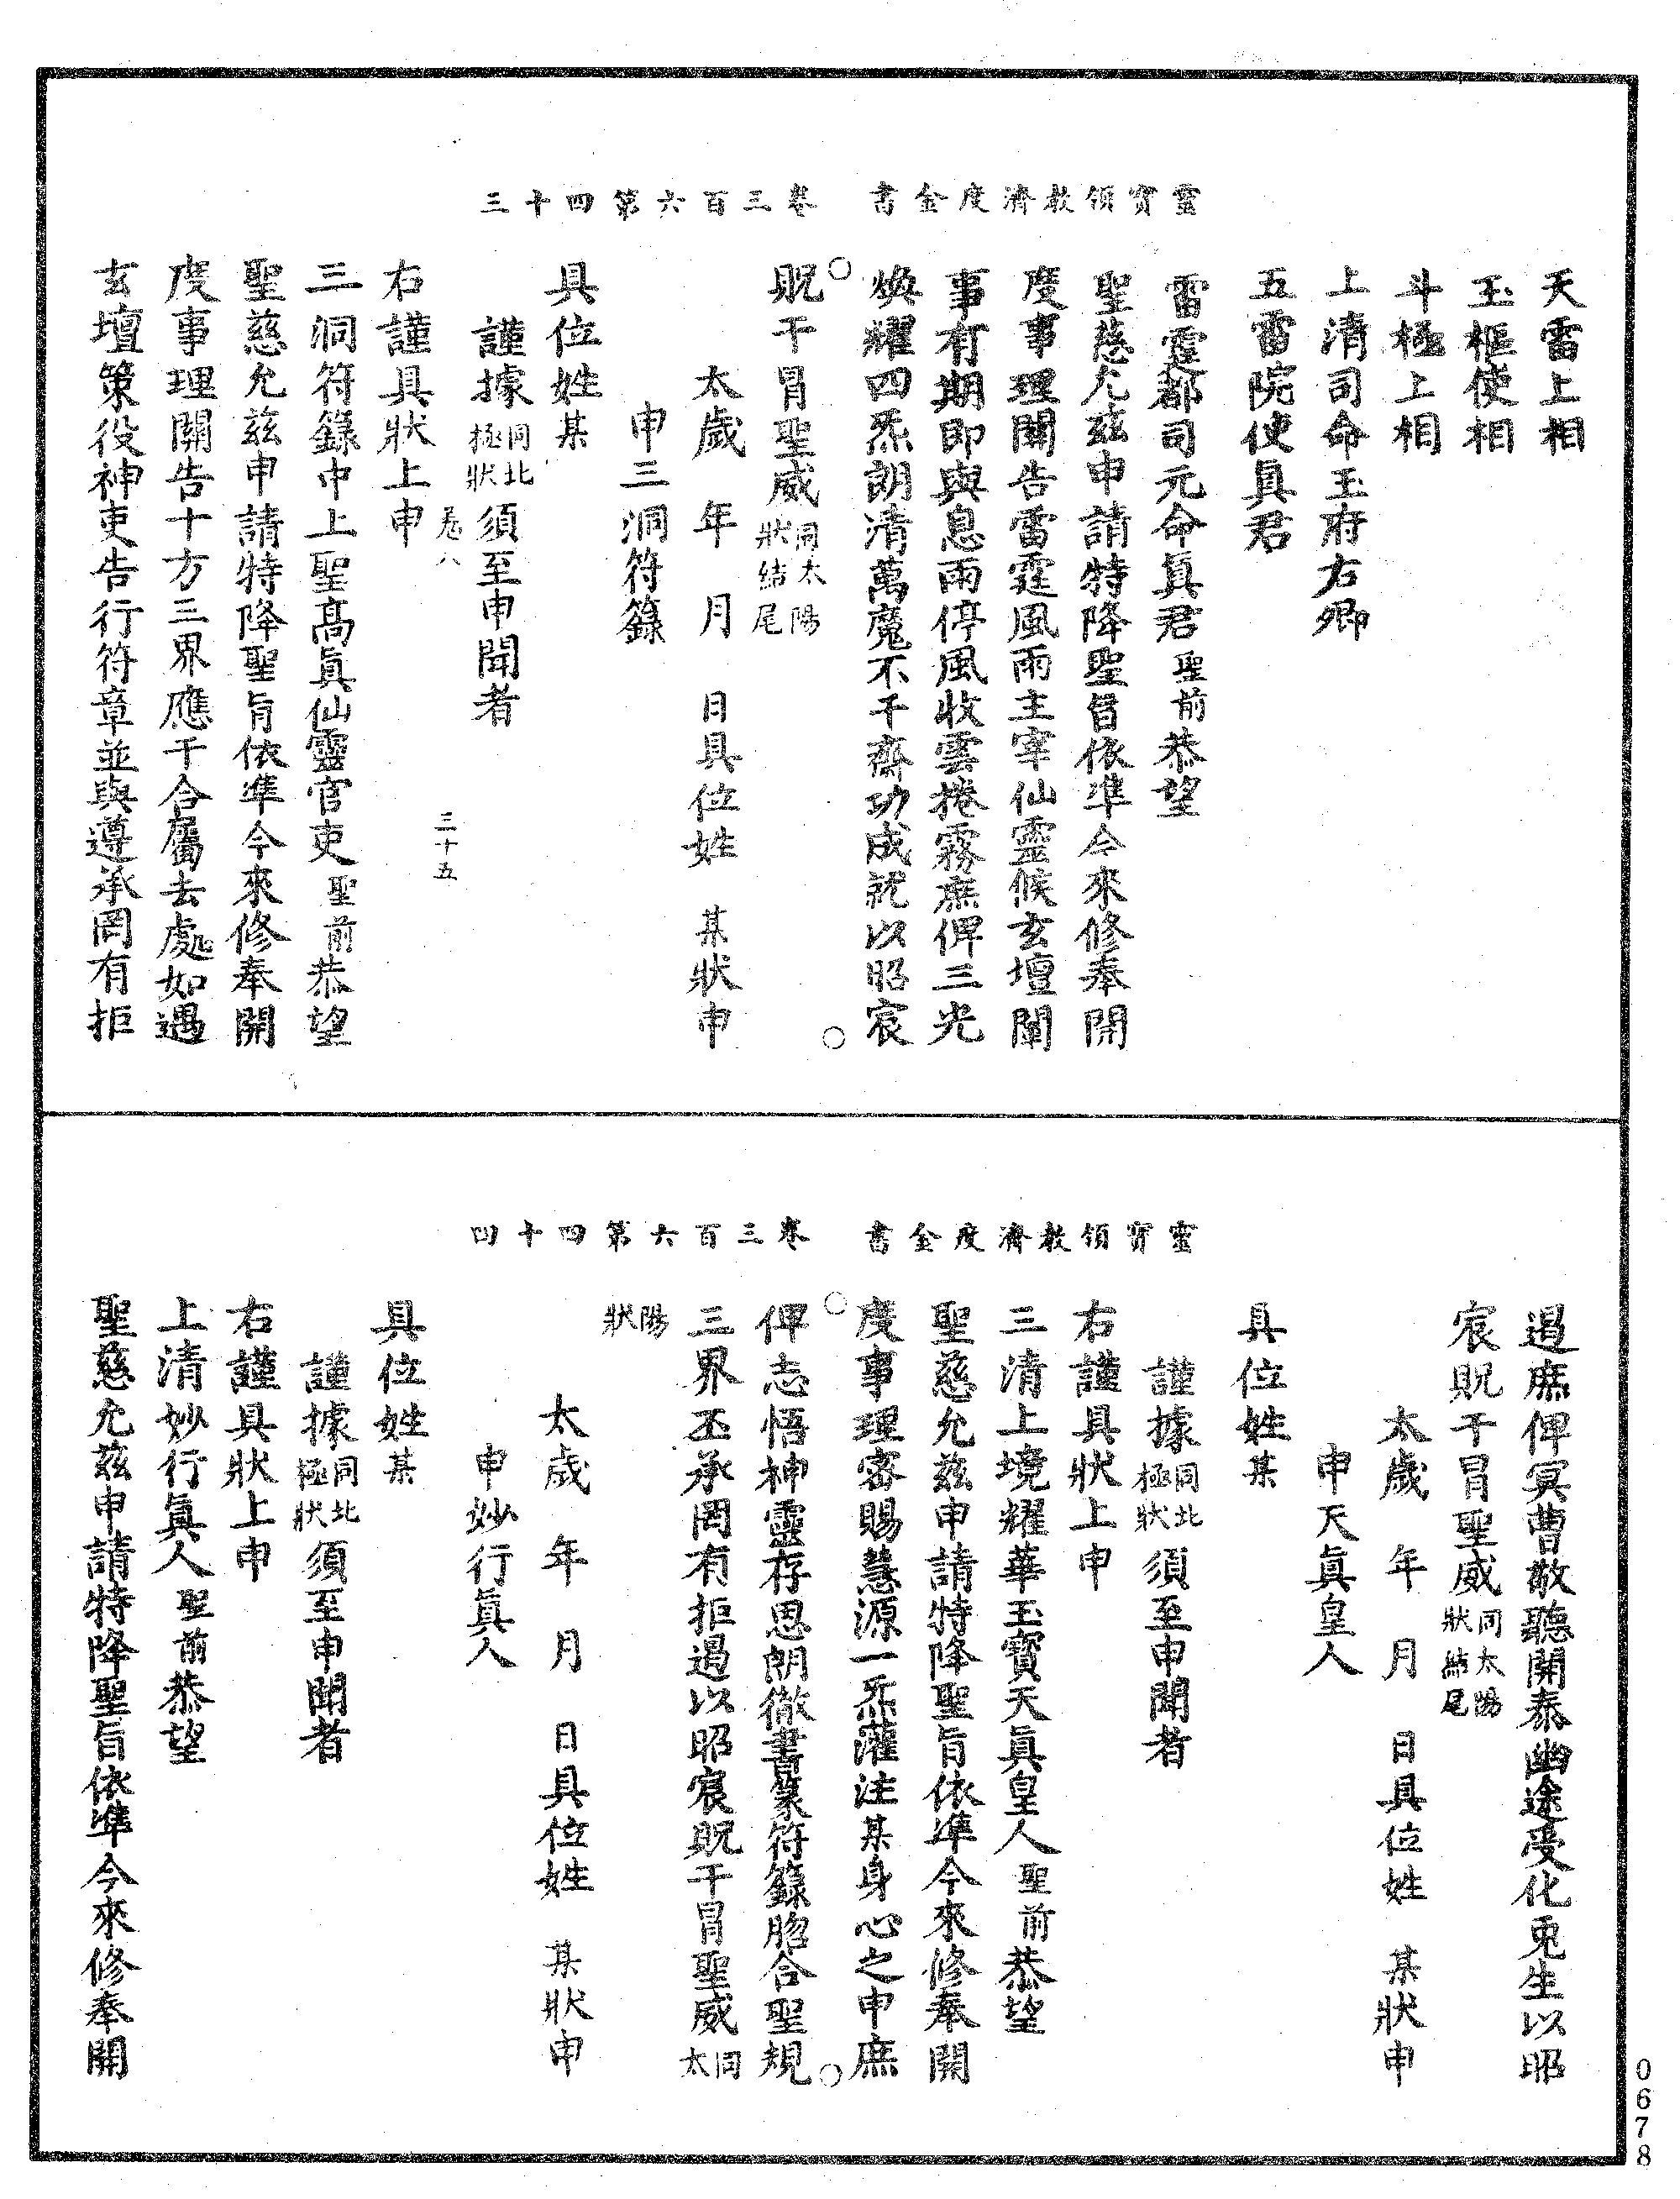 靈寶領教濟度金書　卷三百六第四十三
天雷上相
玉樞使相
斗極上相
上清司命玉府右卿
五雷院使真君
雷霆都司元命真君聖前恭望
聖慈允茲申請特降聖旨依準今來修奉開
度事理關告雷霆風雨主宰仙靈候玄壇闡
事有期即與息雨停風收雲捲霧庶俾三光
煥耀四炁朗清萬魔不干齋功成就以昭宸
貺干冒聖威同太陽狀結尾
太歲　年　月　日具位姓　某狀申
申三洞符籙
具位姓某
謹據同北極狀須至申聞者
卷八　三十五
右謹具狀上申
三洞符籙中上聖高真仙靈官吏聖前恭望
聖慈允茲申請特降聖旨依準今來修奉開
度事理關告十方三界應干合屬去處如遇
玄壇策役神吏告行符章並與遵承罔有拒
靈寶領教濟度金書　卷三百六第四十四
遏庶俾冥曹敬聽開泰幽途受化更生以昭
宸貺干冒聖威同太陽狀結尾
太歲　年　月　日具位姓　某狀申
申天真皇人
具位姓某
謹據同北極狀須至申聞者
右謹具狀上申
三清上境耀華玉寶天真皇人聖前恭望
聖慈允茲申請特降聖旨依準今來修奉開
度事理密賜慧源一炁灌注某身心之中庶
俾志悟神靈存思朗徹書篆符籙脗合聖規
三界丕承罔有拒遏以昭宸貺干冒聖威同太
陽狀
太歲　年　月　日具位姓　某狀申
申妙行真人
具位姓某
謹據同北極狀須至申聞者
右謹具狀上申
上清妙行真人聖前恭望
聖慈允茲申請特降聖旨依準今來修奉開
0678